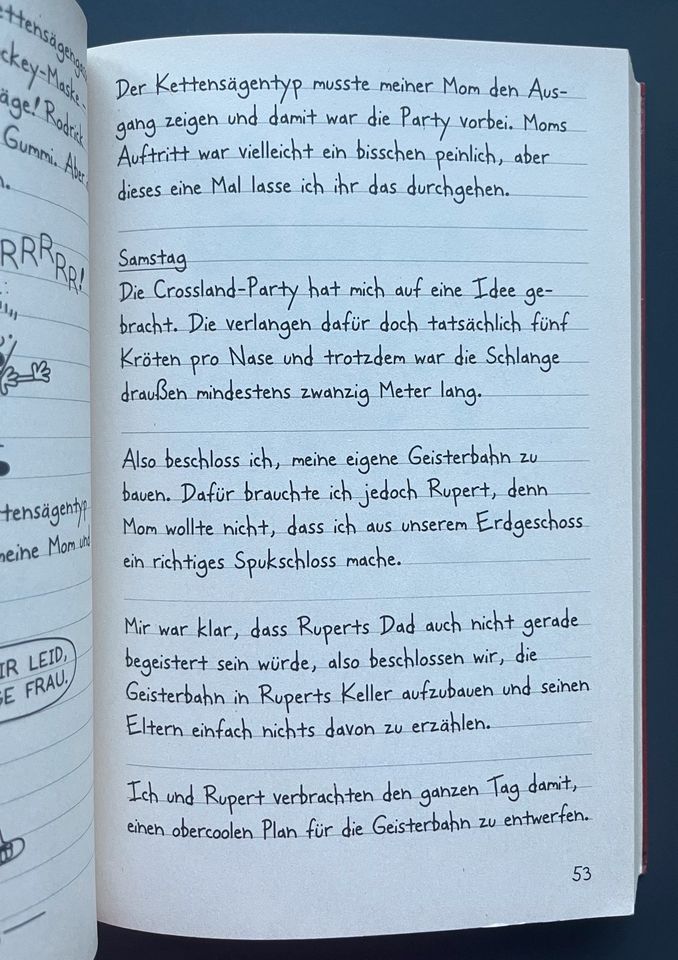 ettensägenge
ckey-Maske-
äge! Rodrick
Gummi. Aber
n.
RRRRR!
ttensägentyp
meine Mom und
IR LEID,
GE FRAU.
Der Kettensägentyp musste meiner Mom den Aus-
gang zeigen und damit war die Party vorbei. Moms
Auftritt war vielleicht ein bisschen peinlich, aber
dieses eine Mal lasse ich ihr das durchgehen.
Samstag
Die Crossland-Party hat mich auf eine Idee ge-
bracht. Die verlangen dafür doch tatsächlich fünf
Kröten pro Nase und trotzdem war die Schlange
draußen mindestens zwanzig Meter lang.
Also beschloss ich, meine eigene Geisterbahn zu
bauen. Dafür brauchte ich jedoch Rupert, denn
Mom wollte nicht, dass ich aus unserem Erdgeschoss
ein richtiges Spukschloss mache.
Mir war klar, dass Ruperts Dad auch nicht gerade
begeistert sein würde, also beschlossen wir, die
Geisterbahn in Ruperts Keller aufzubauen und seinen
Eltern einfach nichts davon zu erzählen.
Ich und Rupert verbrachten den ganzen Tag damit,
einen obercoolen Plan für die Geisterbahn zu entwerfen.
53